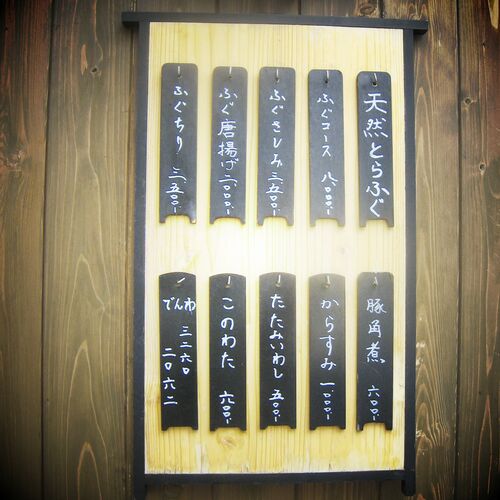 天然とらふぐ
ふぐコース 八、〇〇〇、
ふぐさしみ 三、五〇〇、
ふぐ唐揚げ 二、〇〇〇、
ふぐちり 三、五〇〇、
豚角煮 六〇〇、
からすみ 一、〇〇〇、
たたみいわし 五〇〇、
このわた 六〇〇、
でんわ
三三六〇
二〇六二